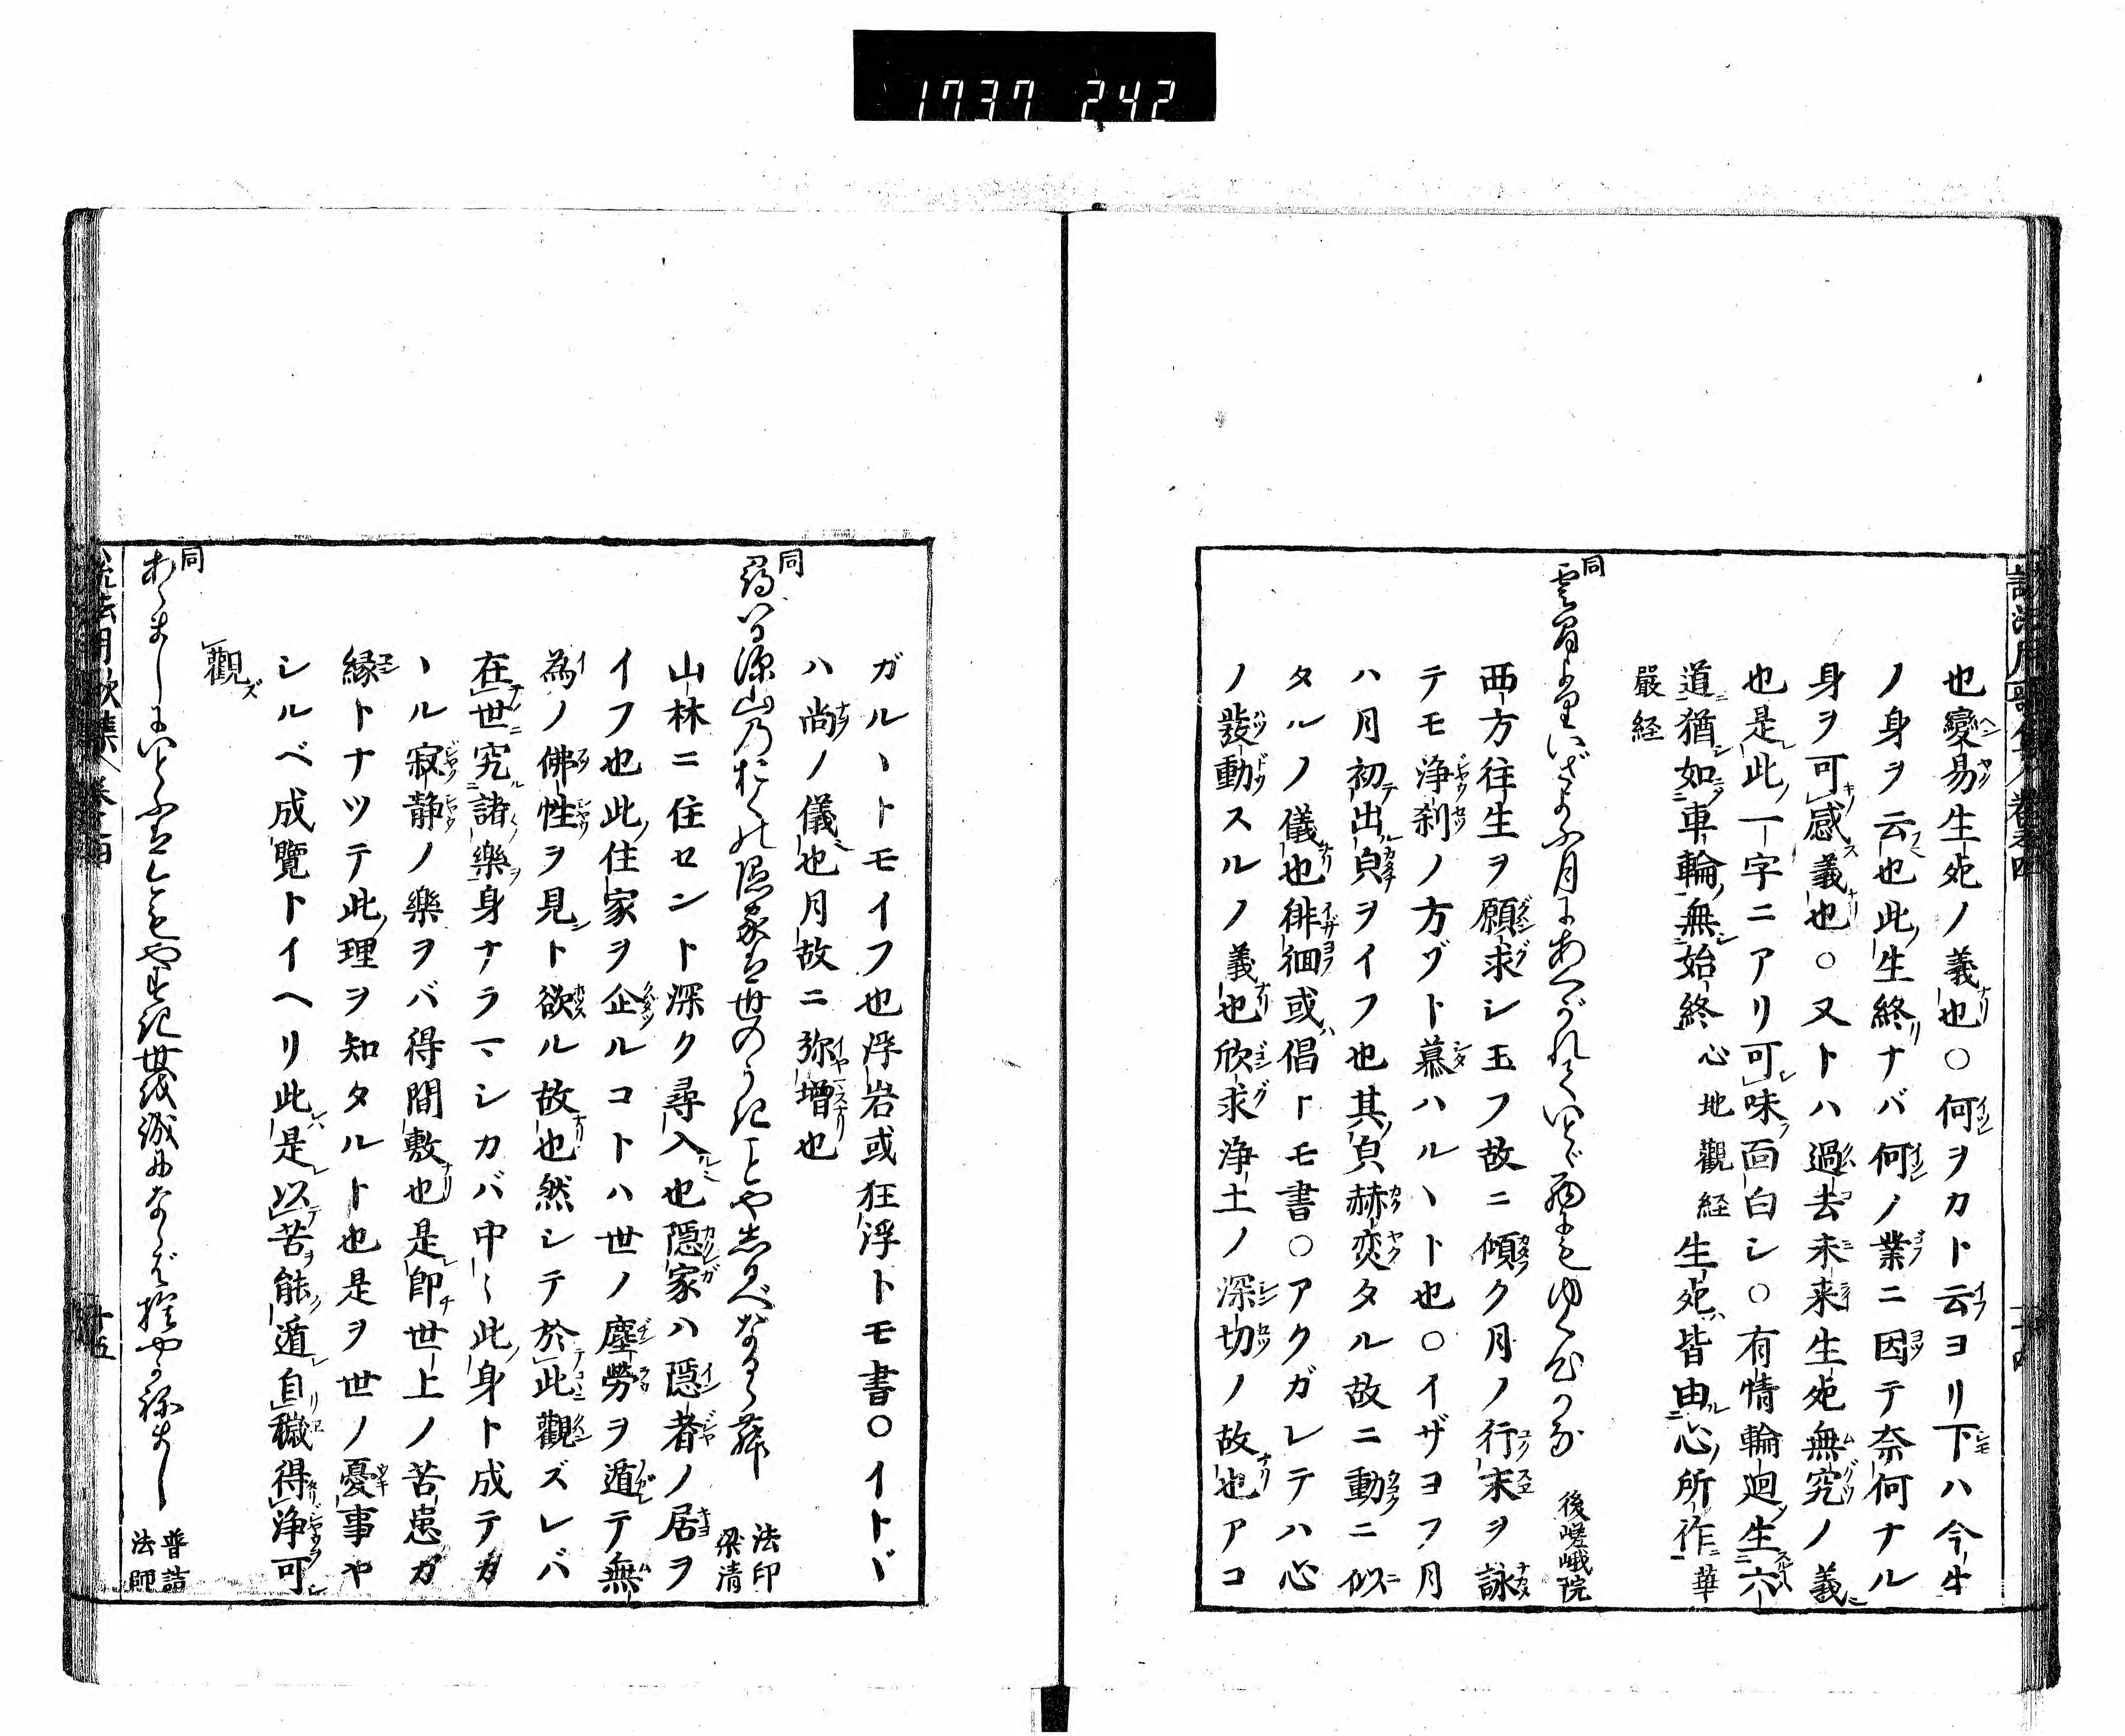 1737 242
也變易生死ノ義也○何ヲカト云ヨリ下ハ今生
ノ身ヲ云也此生終ナバ何ノ業ニ因テ奈何ナル
身ヲ可感義也○又トハ過去未来生死無究ノ義
也是此一字ニアリ可味面白シ○有情輪廻生六
道猶如車輪無始終 心地觀経 生死皆由心所作 華
嚴経
同
雲間よりいざよふ月にあくがれていとゞ西にもゆく心かな 後嵯峨院
西方往生ヲ願求シ玉フ故ニ傾ク月ノ行末ヲ詠
テモ浄刹ノ方ゾト慕ハルヽト也○イザヨフ月
ハ月初出皃ヲイフ也其皃赫奕タル故ニ動ニ似
タルノ儀也徘徊或倡トモ書○アクガレテハ心
ノ發動スルノ義也欣求浄土ノ深切ノ故也アコ
ガルヽトモイフ也浮岩或狂浮トモ書○イトヾ
ハ尚ノ儀也月故ニ弥増也
同
尋いる深山のおくの隠家は世のうきことやしるべなるらむ 法印梁清
山林ニ住セント深ク尋入也隠家ハ隠者ノ居ヲ
イフ也此住家ヲ企ルコトハ世ノ塵勞ヲ遁テ無
為ノ佛性ヲ見ト欲ル故也然シテ於此觀ズレバ
在世究諸樂身ナラマシカバ中〱此身ト成テカ
ヽル寂静ノ樂ヲバ得間敷也是即世上ノ苦患ガ
縁トナツテ此理ヲ知タルト也是ヲ世ノ憂事ヤ
シルベ成覽トイヘリ此是以苦能遁自穢得浄可
觀
同
あらましにいとふはかりもやすき世を誠になさは捨やかねまし 普詰法師